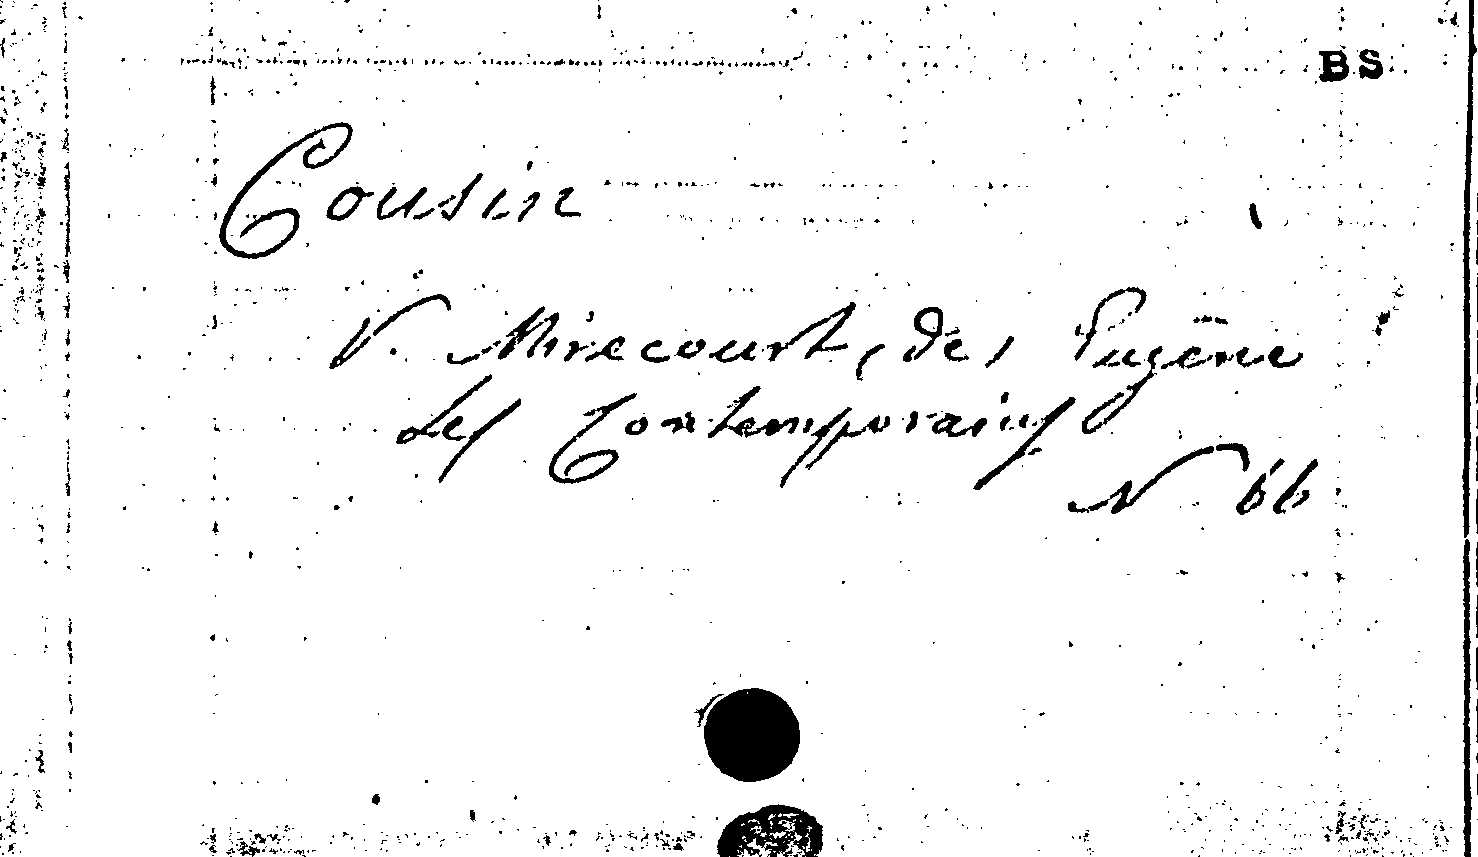 BS
Cousin
V. Mirecourt, (de) Eugène
Les Contemporains
N 66